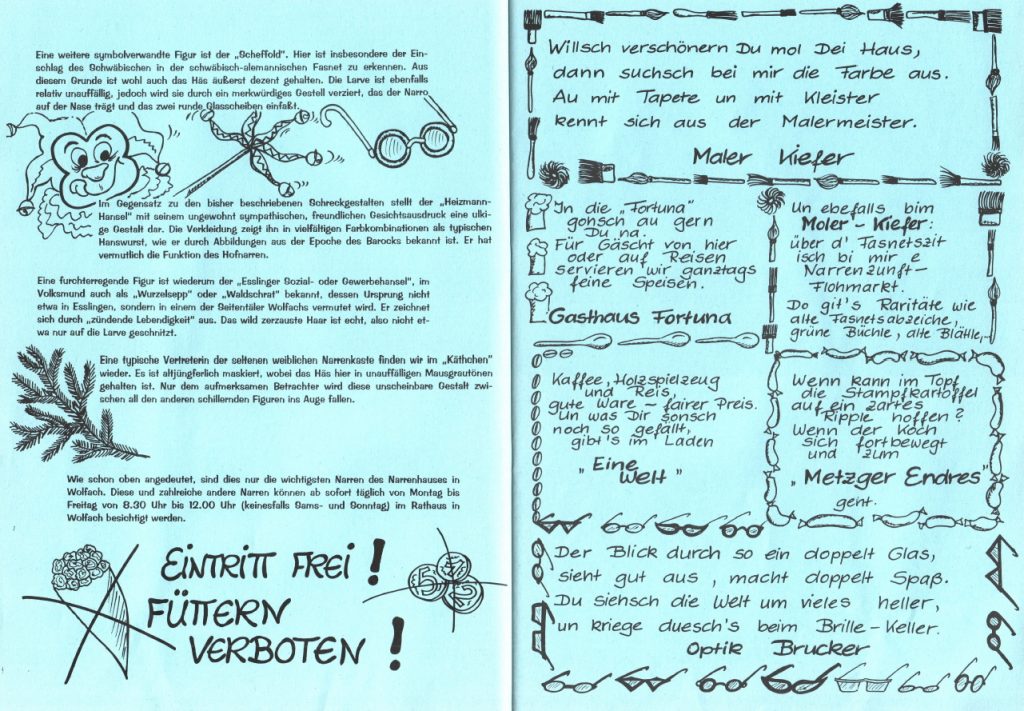 Eine weitere symbolverwandte Figur ist der „Scheffold". Hier ist insbesondere der Ein-
schlag des Schwäbischen in der schwäbisch-alemannischen Fasnet zu erkennen. Aus
diesem Grunde ist wohl auch das Häs äußerst dezent gehalten. Die Larve ist ebenfalls
relativ unauffällig, jedoch wird sie durch ein merkwürdiges Gestell verziert, das der Narro
auf der Nase trägt und das zwei runde Glasscheiben einfaßt.
Im Gegensatz zu den bisher beschriebenen Schreckgestalten stellt der „Heizmann-
Hansel" mit seinem ungewohnt sympathischen, freundlichen Gesichtsausdruck eine ulki-
ge Gestalt dar. Die Verkleidung zeigt ihn in vielfältigen Farbkombinationen als typischen
Hanswurst, wie er durch Abbildungen aus der Epoche des Barocks bekannt ist. Er hat
vermutlich die Funktion des Hofnarren.
Eine furchterregende Figur ist wiederum der „Esslinger Sozial- oder Gewerbehansel", im
Volksmund auch als „Wurzelsepp" oder „Waldschrat" bekannt, dessen Ursprung nicht
etwa in Esslingen, sondern in einem der Seitentäler Wolfachs vermutet wird. Er zeichnet
sich durch „zündende Lebendigkeit" aus. Das wild zerzauste Haar ist echt, also nicht et-
wa nur auf die Larve geschnitzt.
Eine typische Vertreterin der seltenen weiblichen Narrenkaste finden wir im „Käthchen"
wieder. Es ist altjüngferlich maskiert, wobei das Häs hier in unauffälligen Mausgrautönen
gehalten ist. Nur dem aufmerksamen Betrachter wird diese unscheinbare Gestalt zwi-
schen all den anderen schillernden Figuren ins Auge fallen.
Wie schon oben angedeutet, sind dies nur die wichtigsten Narren des Narrenhauses in
Wolfach. Diese und zahlreiche andere Narren können ab sofort täglich von Montag bis
Freitag von 8.30 Uhr bis 12.00 Uhr (keinesfalls Sams- und Sonntag) im Rathaus in
Wolfach besichtigt werden.
EINTRITT FREI!
FÜTTERN
VERBOTEN!
Willsch verschönern Du mol Dei Haus,
dann suchsch bei mir die Farbe aus.
Au mit Tapete un mit Kleister
kennt sich aus der Malermeister.
Maler Kiefer
In die „Fortuna"
gohsch au gern
Du na.
Für Gäscht von hier
oder auf Reisen
servieren wir ganztags
feine Speisen.
Gasthaus Fortuna
Un ebefalls bim
Moler-Kiefer:
über d' Fasnetszit
isch bi mir e
Narrenzunft-
Flohmarkt.
Do git's Raritäte wie
alte Fasnetsabzeiche,
grüne Büchle, alte Blättle,–
Kaffee, Holzspielzeug
und Reis,
gute Ware – fairer Preis.
Un was Dir sonsch
noch so gefällt,
gibt's im Laden
„Eine
Welt"
Wenn kann im Topf
die Stampfkartoffel
auf ein zartes
Ripple hoffen?
Wenn der Koch
sich fortbewegt
und zum
„Metzger Endres"
geht.
Der Blick durch so ein doppelt Glas,
sieht gut aus, macht doppelt Spaß.
Du siehsch die Welt um vieles heller,
un kriege duesch's beim Brille-Keller.
Optik Brucker